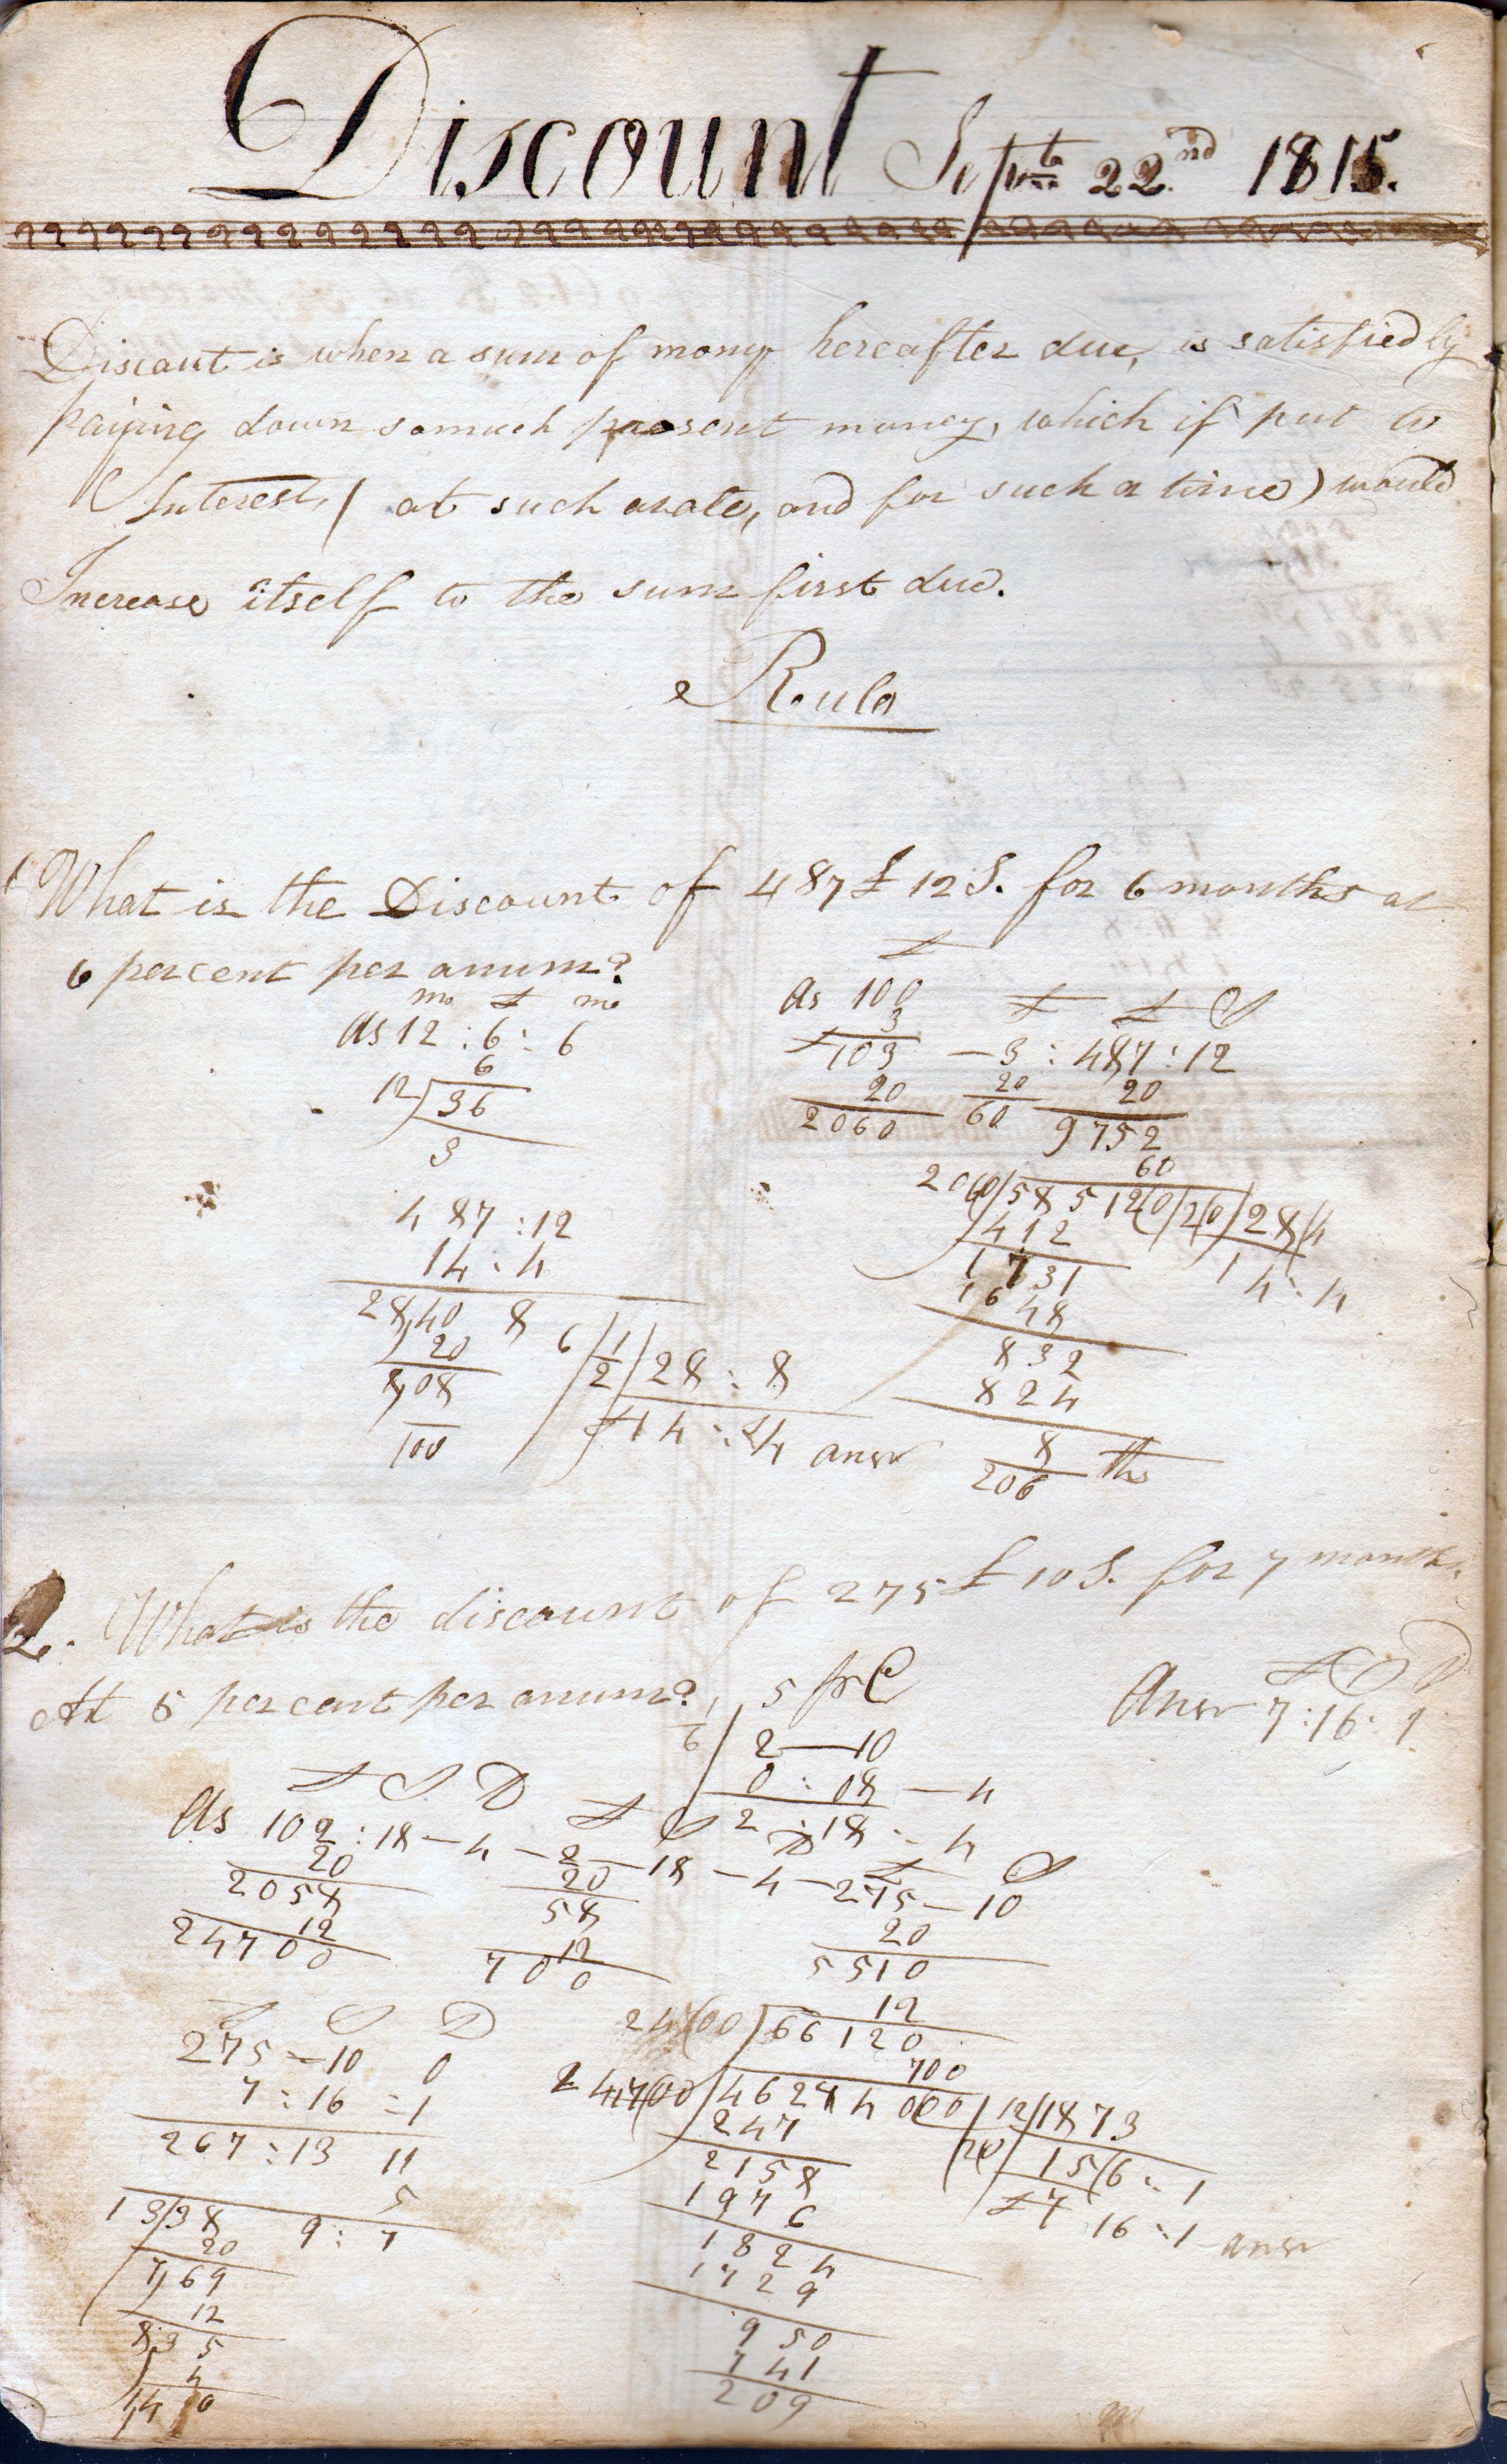 Discount Septr 22nd 1815.
Discaut is when a sum of mony hereafter due, is satisfied by
paijing down somuch present money, which if put to
Interest, ( at such a rate, and for such a time) would
Increase itself to the sum first due.
Rule
1 What is the Discount of 487£ 12S. for 6 months at
6 percent per anum?
mo £ mo
As 12 : 6 : 6
6
12)36
3
£
As 100
3
£ £ S
103 — 3 : 487 : 12
20 20 20
2060 60 9752
60
2060/585120/20/284
412 14 : 4
1731
1648
832
824
8
206 ths
487 : 12
14 : 4
28,40 8
20
8,08
100
6 1/2 28 : 8
£14 : 4 answ
2. What is the discount of 275£ 10S. for 7 months.
At 5 per cent per anum?
5 pr C
1/6 2—10
0 : 08 — 4
2 : 18 : 4
£ S D
Answ 7 : 16 : 1
£ S D £ S D £ S
As 102 : 18 — 4 — 2 — 18 — 4 — 275 — 10
20 20 20
2058 58 5510
12 12 12
24700 700 66120
24700)
700
24700/46284000/12/1873
247 20 156 : 1
2158 £7 16 : 1 answ
1976
1824
1729
950
741
209
£ S D
275 — 10 0
7 : 16 : 1
267 : 13 11
5
13/38 9 : 7
20
7,69
12
8,35
4
1,40